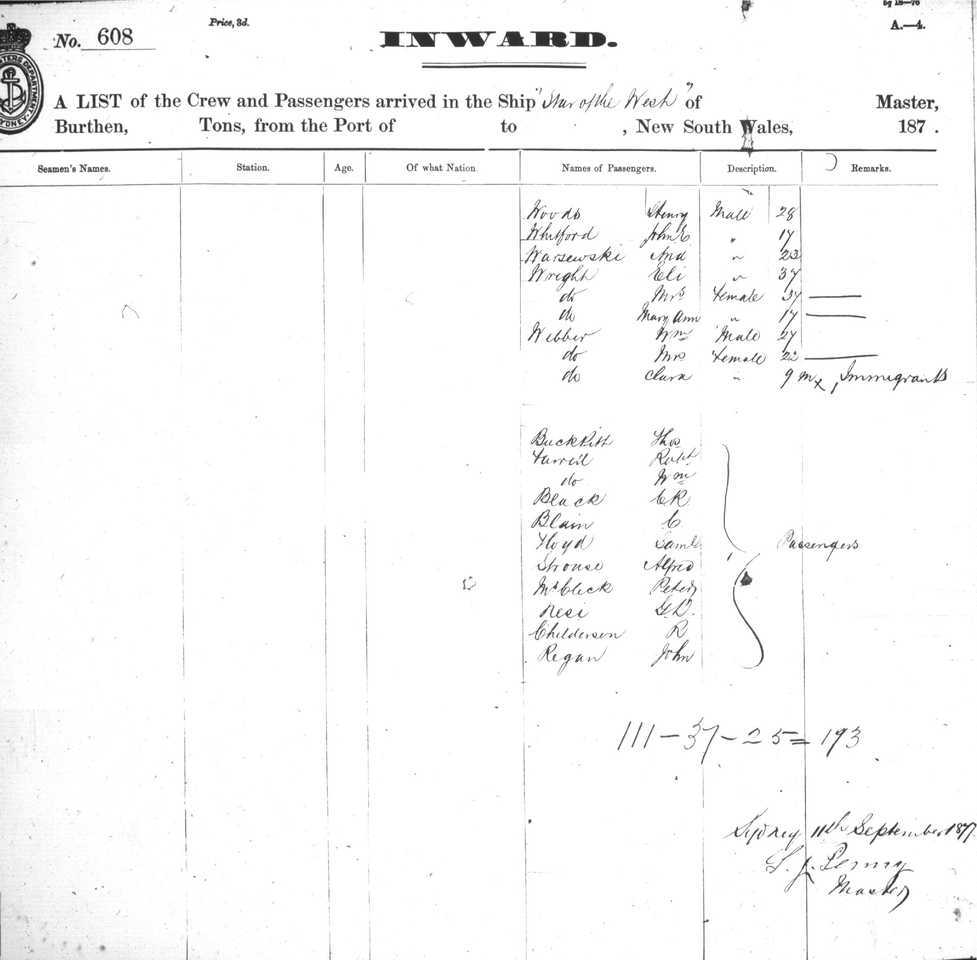 Price, 3d.
A.—4.
No. 608
INWARD.
A LIST of the Crew and Passengers arrived in the Ship "Star of the West" of Master,
Burthen, Tons, from the Port of to , New South Wales, 187 .
Seamen's Names. Station. Age. Of what Nation. Names of Passengers. Description. Remarks.
Woods Henry Male 28
Whitford John E " 17
Warsewski And " 23
Wright Eli " 37
do Mrs Female 37
do Mary Ann " 17
Webber Wm Male 27
do Mrs Female 22
do Clara " 9 m Immigrants
Thos
Robt
do Wm
Black CR
Blain C
Floyd Saml Passengers
Strouse Alfred
McCleck Peter
Nesi G.D.
Childersen R
Regan John
111 – 37 – 25 = 193
Sydney 11th September 1877
Master